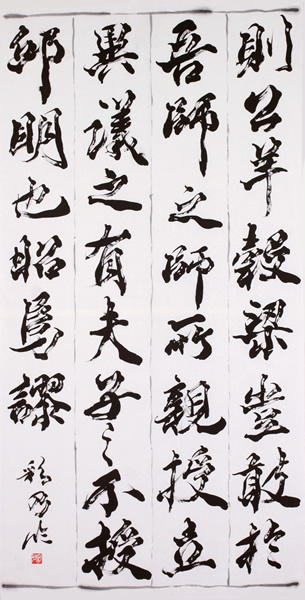 則公羊穀梁豈敢於
吾師之師所親授立
異議之有夫子〻不授
邱明也昭為謬
彩